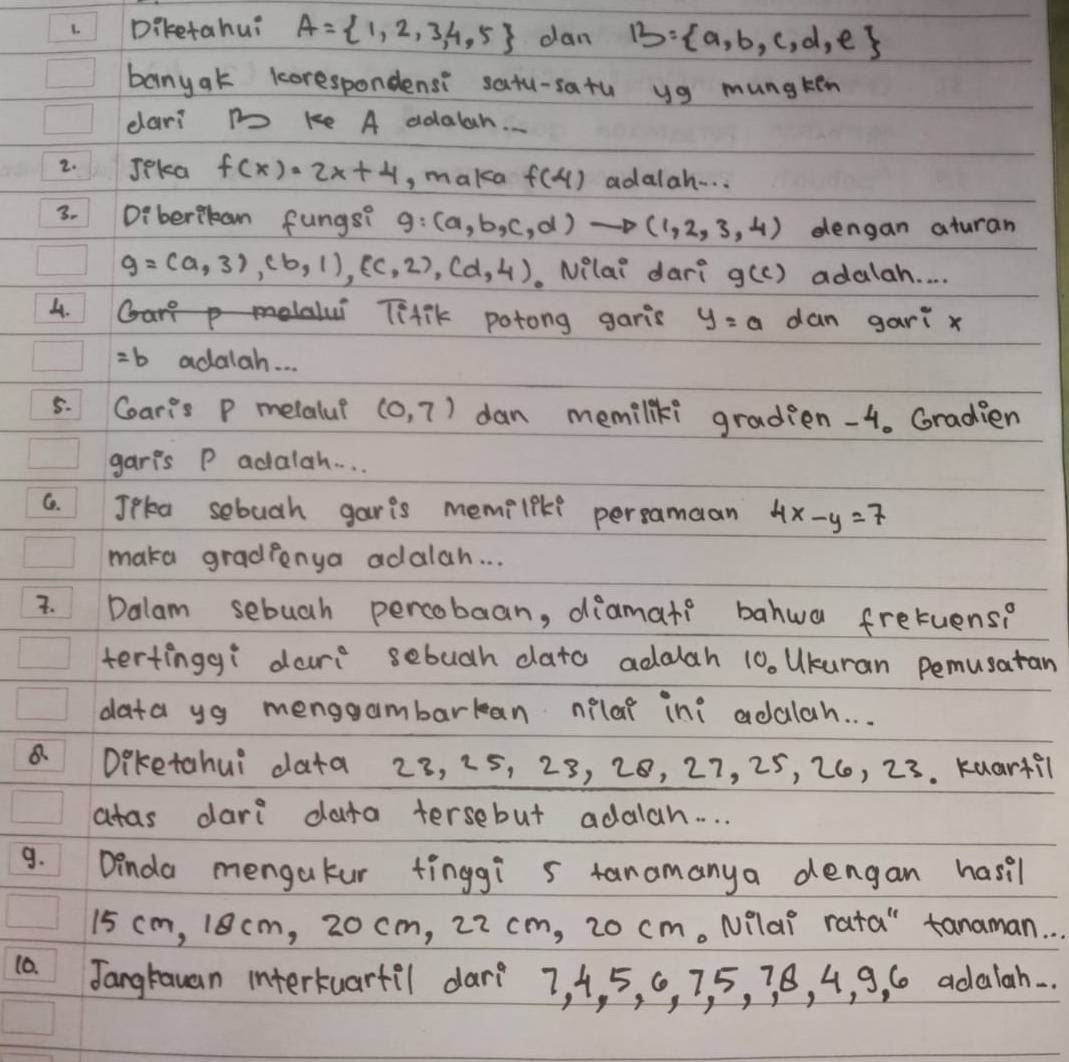 1. Diketahui A = {1, 2, 3, 4, 5} dan B = {a, b, c, d, e}
banyak korespondensi satu-satu yg mungkin
dari B ke A adalah...
2. Jika f(x) = 2x + 4, maka f(4) adalah...
3. Diberikan fungsi g: (a, b, c, d) → (1, 2, 3, 4) dengan aturan
g = (a, 3), (b, 1), (c, 2), (d, 4). Nilai dari g(c) adalah....
4. Gari p melalui Titik potong garis y = a dan gari x
= b adalah...
5. Garis P melalui (0, 7) dan memiliki gradien -4. Gradien
garis P adalah....
6. Jika sebuah garis memiliki persamaan 4x - y = 7
maka gradienya adalah...
7. Dalam sebuah percobaan, diamati bahwa frekuensi
tertinggi dari sebuah data adalah 10. Ukuran pemusatan
data yg menggambarkan nilai ini adalah...
8. Diketahui data 23, 25, 23, 28, 27, 25, 26, 23. Kuartil
atas dari data tersebut adalah....
9. Dinda mengukur tinggi 5 tanamanya dengan hasil
15 cm, 18 cm, 20 cm, 22 cm, 20 cm. Nilai rata" tanaman...
10. Jangkauan interkuartil dari 7, 4, 5, 6, 7, 5, 7, 8, 4, 9, 6 adalah...